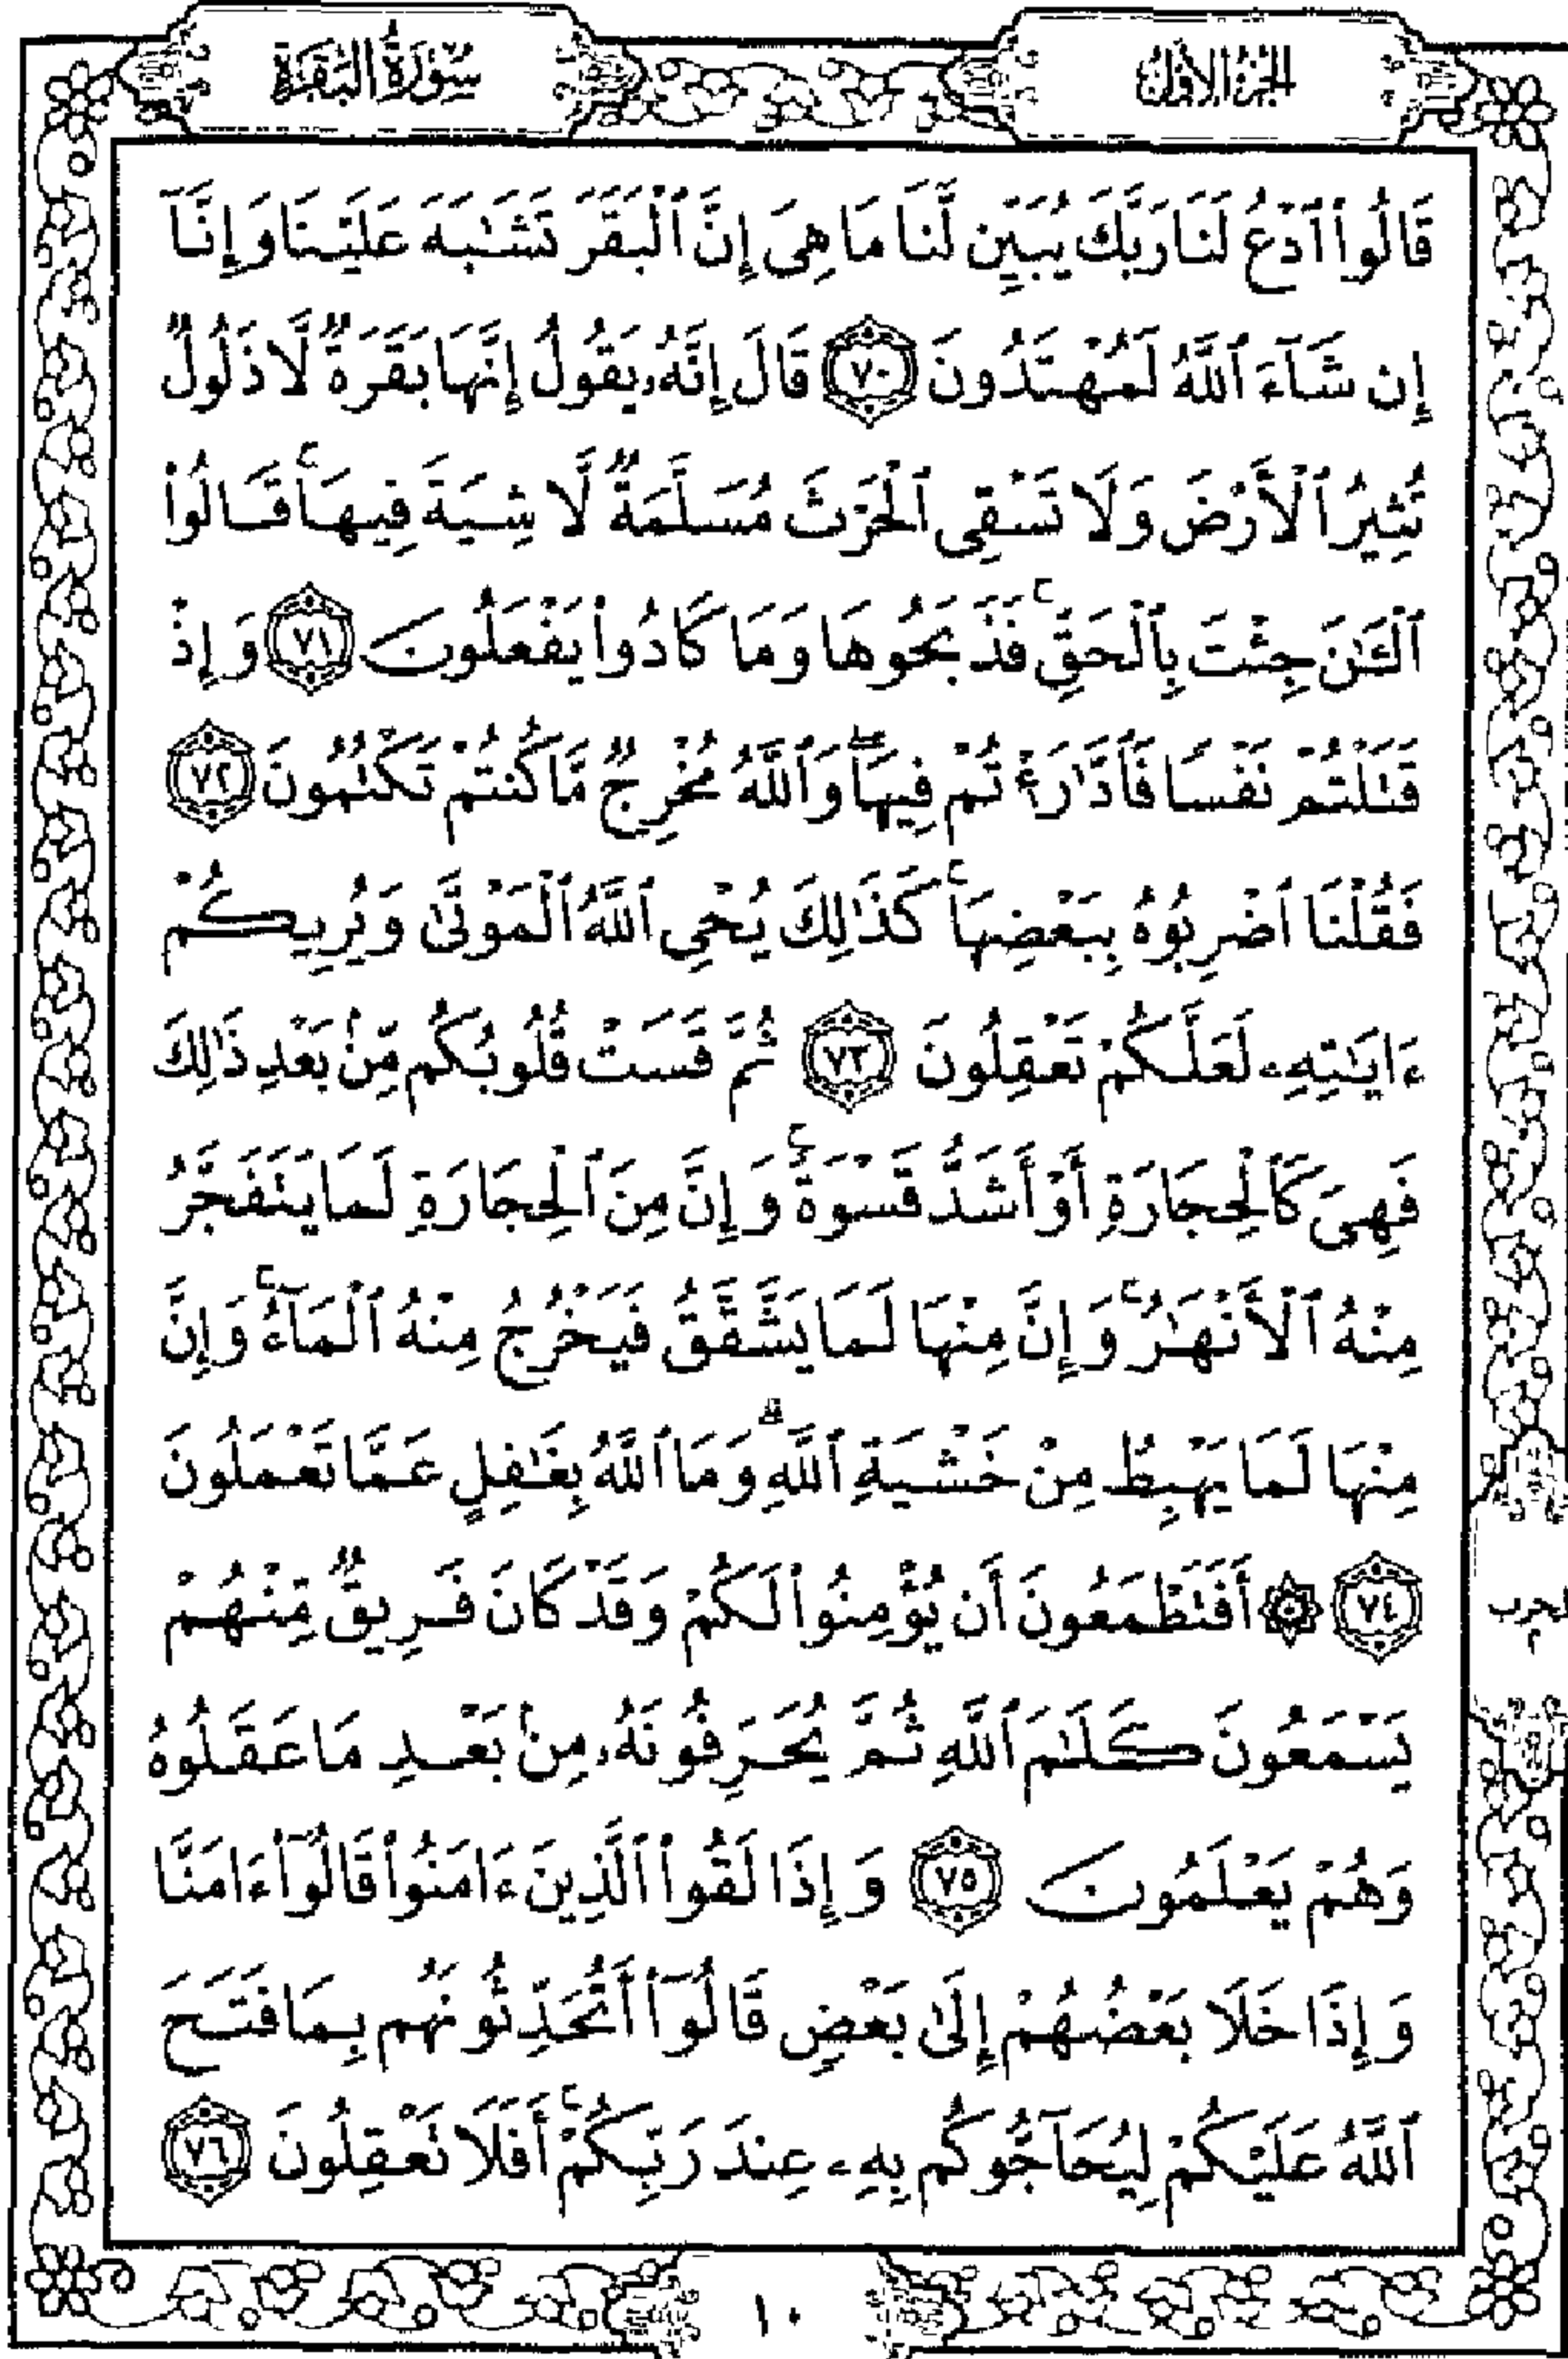 الجزء الأول
سورة البقرة
قَالُوا۟ ٱدْعُ لَنَا رَبَّكَ يُبَيِّن لَّنَا مَا هِىَ إِنَّ ٱلْبَقَرَ تَشَـٰبَهَ عَلَيْنَا وَإِنَّآ
إِن شَآءَ ٱللَّهُ لَمُهْتَدُونَ ٧٠ قَالَ إِنَّهُۥ يَقُولُ إِنَّهَا بَقَرَةٌ لَّا ذَلُولٌ
تُثِيرُ ٱلْأَرْضَ وَلَا تَسْقِى ٱلْحَرْثَ مُسَلَّمَةٌ لَّا شِيَةَ فِيهَا ۚ قَالُوا۟
ٱلْـَٔـٰنَ جِئْتَ بِٱلْحَقِّ ۚ فَذَبَحُوهَا وَمَا كَادُوا۟ يَفْعَلُونَ ٧١ وَإِذْ
قَتَلْتُمْ نَفْسًا فَٱدَّٰرَْٰٔتُمْ فِيهَا ۖ وَٱللَّهُ مُخْرِجٌ مَّا كُنتُمْ تَكْتُمُونَ ٧٢
فَقُلْنَا ٱضْرِبُوهُ بِبَعْضِهَا ۚ كَذَٰلِكَ يُحْىِ ٱللَّهُ ٱلْمَوْتَىٰ وَيُرِيكُمْ
ءَايَـٰتِهِۦ لَعَلَّكُمْ تَعْقِلُونَ ٧٣ ثُمَّ قَسَتْ قُلُوبُكُم مِّنۢ بَعْدِ ذَٰلِكَ
فَهِىَ كَٱلْحِجَارَةِ أَوْ أَشَدُّ قَسْوَةً ۚ وَإِنَّ مِنَ ٱلْحِجَارَةِ لَمَا يَتَفَجَّرُ
مِنْهُ ٱلْأَنْهَـٰرُ ۚ وَإِنَّ مِنْهَا لَمَا يَشَّقَّقُ فَيَخْرُجُ مِنْهُ ٱلْمَآءُ ۚ وَإِنَّ
مِنْهَا لَمَا يَهْبِطُ مِنْ خَشْيَةِ ٱللَّهِ ۗ وَمَا ٱللَّهُ بِغَـٰفِلٍ عَمَّا تَعْمَلُونَ
٧٤ ۞ أَفَتَطْمَعُونَ أَن يُؤْمِنُوا۟ لَكُمْ وَقَدْ كَانَ فَرِيقٌ مِّنْهُمْ
يَسْمَعُونَ كَلَـٰمَ ٱللَّهِ ثُمَّ يُحَرِّفُونَهُۥ مِنۢ بَعْدِ مَا عَقَلُوهُ
وَهُمْ يَعْلَمُونَ ٧٥ وَإِذَا لَقُوا۟ ٱلَّذِينَ ءَامَنُوا۟ قَالُوٓا۟ ءَامَنَّا
وَإِذَا خَلَا بَعْضُهُمْ إِلَىٰ بَعْضٍ قَالُوٓا۟ أَتُحَدِّثُونَهُم بِمَا فَتَحَ
ٱللَّهُ عَلَيْكُمْ لِيُحَآجُّوكُم بِهِۦ عِندَ رَبِّكُمْ ۚ أَفَلَا تَعْقِلُونَ ٧٦
١٠